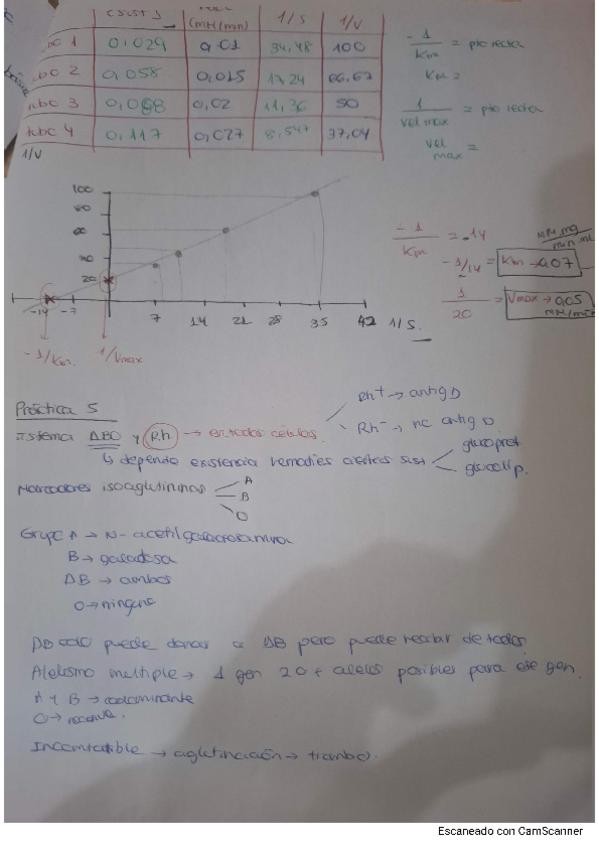 [sust] (mM/min) 1/S 1/V
tubo 1 0,029 0,01 34,48 100
tubo 2 0,058 0,015 17,24 66,67
tubo 3 0,088 0,02 11,36 50
tubo 4 0,117 0,027 8,547 37,04
1/V
-1/Km = pto recta
Km =
1/vel max = pto recta
vel max =
100
80
60
40
20
-14 -7 7 14 21 28 35 42 1/S.
-1/Km. 1/Vmax
-1/Km = -14
-1/14 = Km → 0,07
1/20 = Vmax → 0,05 mM/min
Práctica 5
Sistema ABO y Rh → en todas células
Rh+ → antig D
Rh- → no antig D.
↳ depende existencia hematíes ciertas sust
glucoprot
glucolip.
Marcadores isoaglutininas
A
B
O
Grupo A → N-acetilgalactosamina
B → galactosa
AB → ambos
O → ninguno
AB solo puede donar a AB pero puede recibir de todos.
Alelismo multiple → 1 gen 20 + alelos posibles para ese gen.
A y B → codominante
O → recesivo.
Incompatible → aglutinación → trombo.
Escaneado con CamScanner